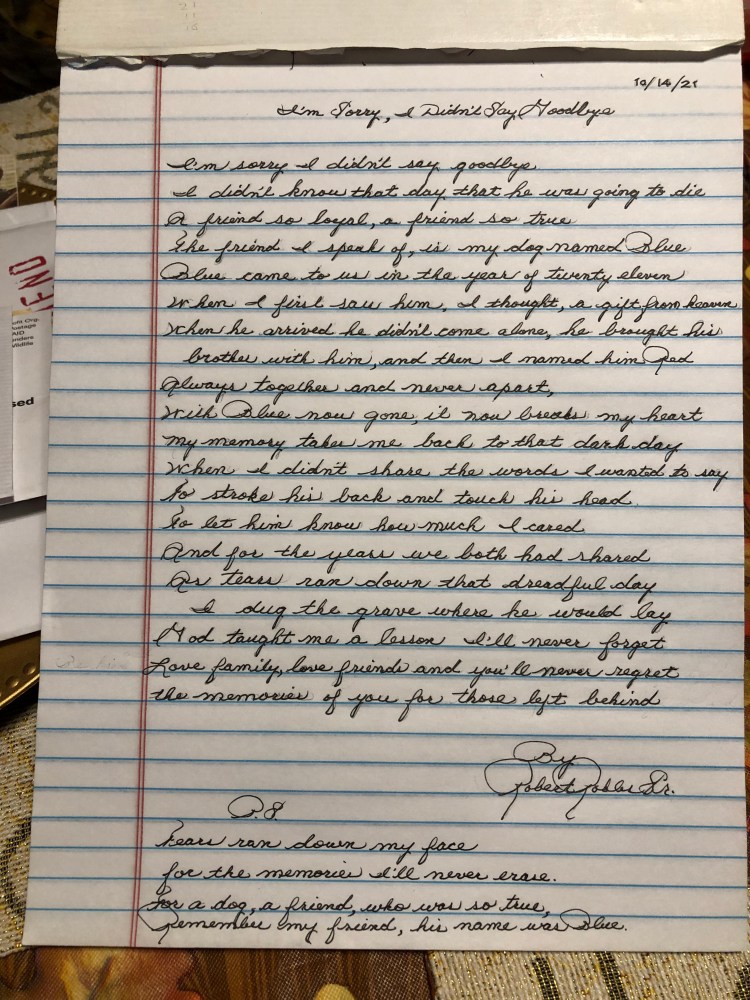 10/14/21
I'm Sorry, I Didn't Say Goodbye
I'm sorry I didn't say goodbye
I didn't know that day that he was going to die
A friend so loyal, a friend so true
The friend I speak of, is my dog named Blue
Blue came to us in the year of twenty eleven
When I first saw him, I thought, a gift from heaven
When he arrived he didn't come alone, he brought his
brother with him, and then I named him Red
Always together and never apart,
With Blue now gone, it now breaks my heart
My memory takes me back to that dark day
When I didn't share the words I wanted to say
To stroke his back and touch his head
To let him know how much I cared
And for the years we both had shared
As tears ran down that dreadful day
I dug the grave where he would lay
God taught me a lesson I'll never forget
Love family, love friends and you'll never regret
the memories of you for those left behind
By
Robert Robles Sr.
P.S.
Tears ran down my face
for the memories I'll never erase.
For a dog, a friend, who was so true,
Remember my friend, his name was Blue.
END
Org.
Postage
AID
Wildlife
sed